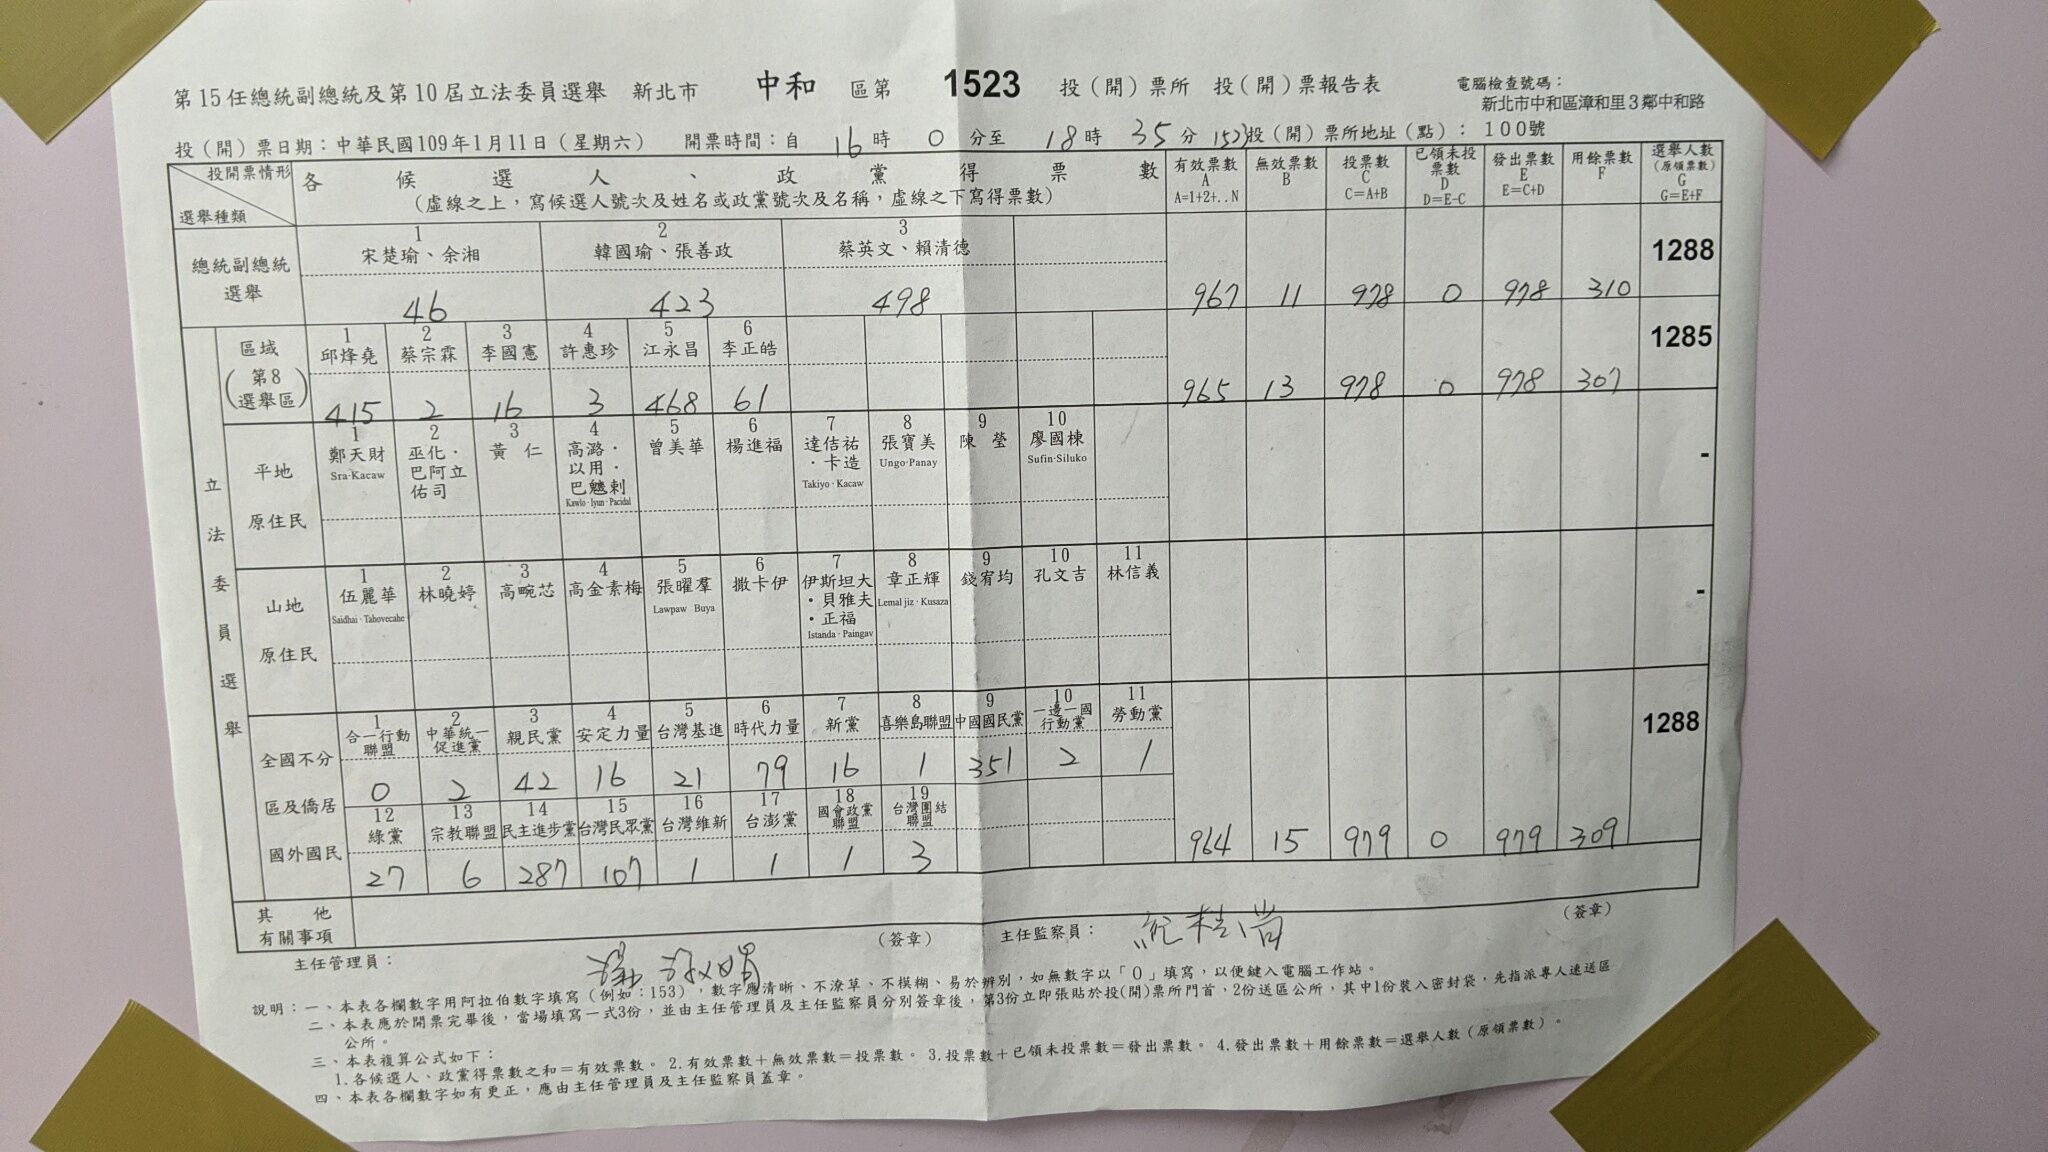 第15任總統副總統及第10屆立法委員選舉 新北市 中和 區第 1523 投(開)票所 投(開)票報告表 電腦檢查號碼：
新北市中和區漳和里3鄰中和路
投(開)票日期：中華民國109年1月11日(星期六) 開票時間：自 16 時 0 分至 18 時 35 分 1523投(開)票所地址(點)： 100號
投開票情形
選舉種類
各候選人、政黨得票數
(虛線之上，寫候選人號次及姓名或政黨號次及名稱，虛線之下寫得票數)
有效票數 A A=1+2+..N
無效票數 B
投票數 C C=A+B
已領未投票數 D D=E-C
發出票數 E E=C+D
用餘票數 F
選舉人數 (原領票數) G G=E+F
總統副總統選舉
1 2 3
宋楚瑜、余湘 韓國瑜、張善政 蔡英文、賴清德
46 423 498 967 11 978 0 978 310 1288
立法委員選舉
區域(第8選舉區)
1 2 3 4 5 6
邱烽堯 蔡宗霖 李國憲 許惠珍 江永昌 李正皓
415 2 16 3 468 61 965 13 978 0 978 307 1285
平地原住民
1 2 3 4 5 6 7 8 9 10
鄭天財 Sra·Kacaw
巫化·巴阿立佑司
黃仁
高潞·以用·巴魕剌 Kawlo·Iyun·Pacidal
曾美華
楊進福
達佶祐·卡造 Takiyo·Kacaw
張寶美 Ungo·Panay
陳瑩
廖國棟 Sufin·Siluko
-
山地原住民
1 2 3 4 5 6 7 8 9 10 11
伍麗華 Saidhai·Tahovecahe
林曉婷
高畹芯
高金素梅
張曜羣 Lawpaw Buya
撒卡伊
伊斯坦大·貝雅夫·正福 Istanda·Paingav
章正輝 Lemaljiz·Kusaza
錢宥均
孔文吉
林信義
-
全國不分區及僑居國外國民
1 2 3 4 5 6 7 8 9 10 11
合一行動聯盟 中華統一促進黨 親民黨 安定力量 台灣基進 時代力量 新黨 喜樂島聯盟 中國國民黨 一邊一國行動黨 勞動黨
0 2 42 16 21 79 16 1 351 2 1 1288
12 13 14 15 16 17 18 19
綠黨 宗教聯盟 民主進步黨 台灣民眾黨 台灣維新 台澎黨 國會政黨聯盟 台灣團結聯盟
27 6 287 107 1 1 1 3 964 15 979 0 979 309
其他有關事項
主任管理員： (簽章) 主任監察員： (簽章)
說明：一、本表各欄數字用阿拉伯數字填寫(例如：153)，數字應清晰、不潦草、不模糊、易於辨別，如無數字以「0」填寫，以便鍵入電腦工作站。
二、本表應於開票完畢後，當場填寫一式3份，並由主任管理員及主任監察員分別簽章後，第3份立即張貼於投(開)票所門首，2份送區公所，其中1份裝入密封袋，先指派專人速送區
公所。
三、本表複算公式如下：
1.各候選人、政黨得票數之和＝有效票數。2.有效票數＋無效票數＝投票數。3.投票數＋已領未投票數＝發出票數。4.發出票數＋用餘票數＝選舉人數(原領票數)。
四、本表各欄數字如有更正，應由主任管理員及主任監察員蓋章。